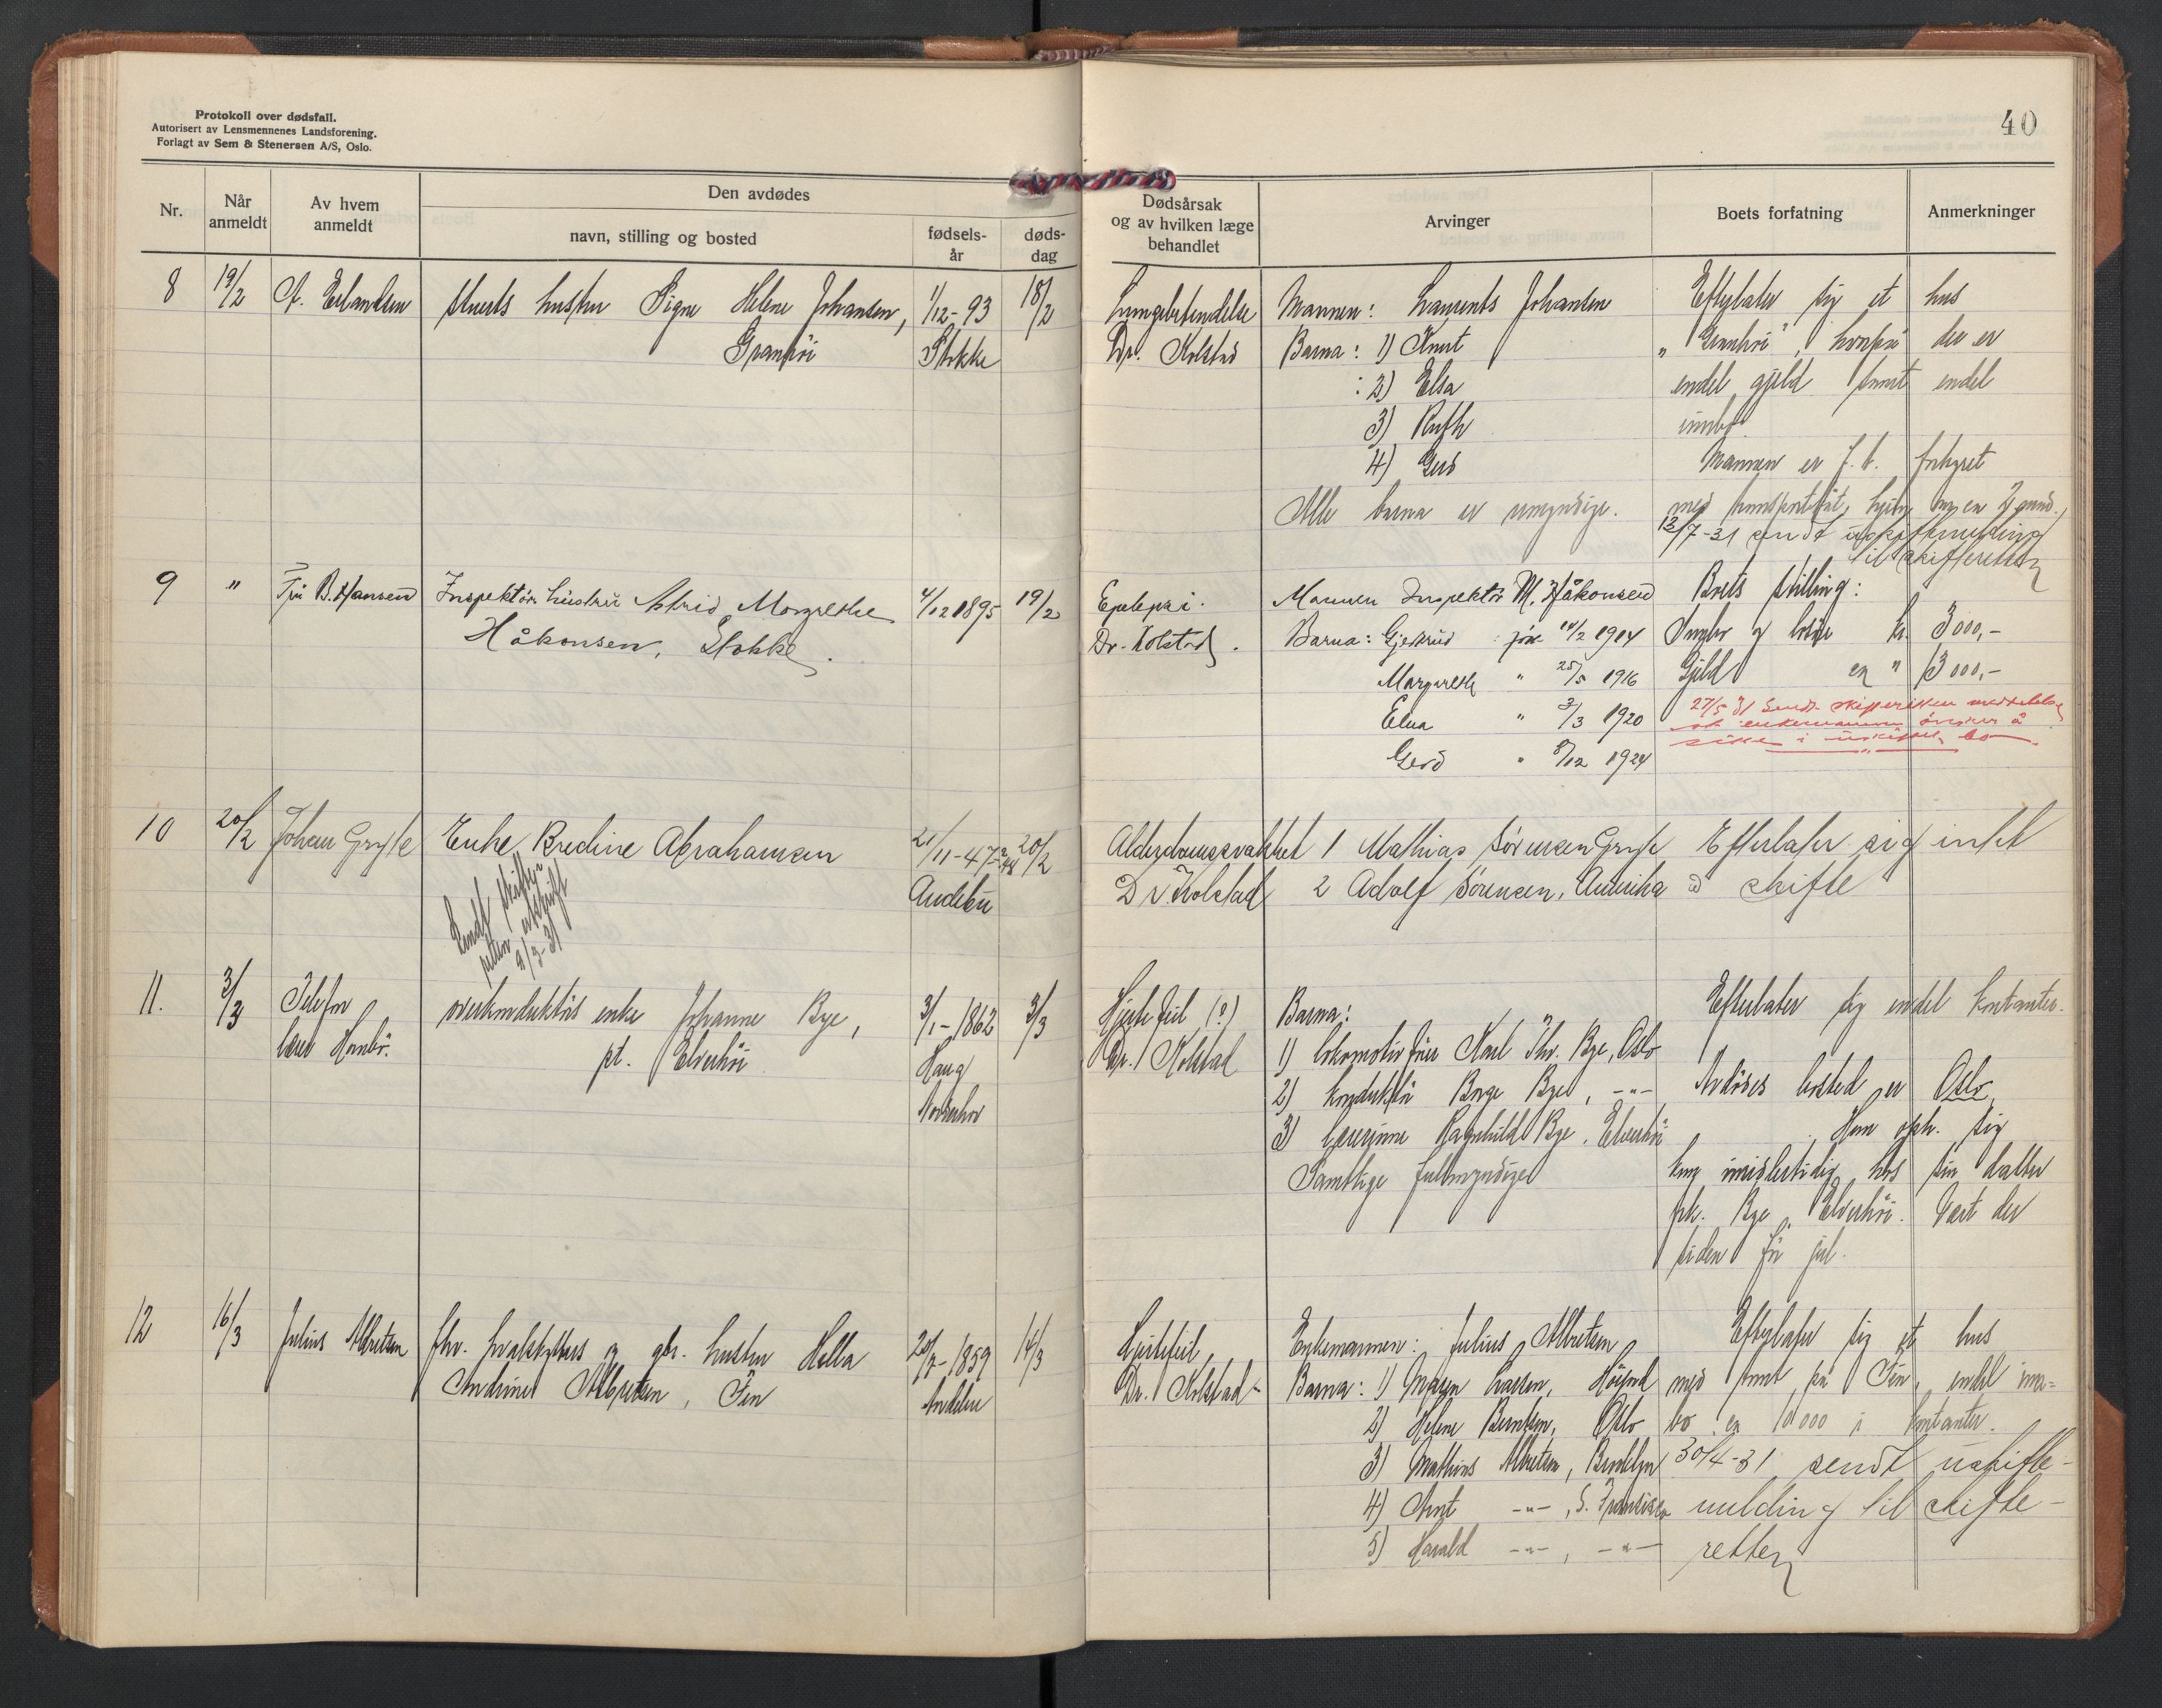 Protokoll over dødsfall.
Autorisert av Lensmennenes Landsforening.
Forlagt av Sem & Stenersen A/S, Oslo.
40
Nr.
Når anmeldt
Av hvem anmeldt
Den avdødes
navn, stilling og bosted
fødsels-år
døds-dag
Dødsårsak og av hvilken læge behandlet
Arvinger
Boets forfatning
Anmerkninger
8
19/2
A. Erlandsen
Stuerts hustru Signe Helene Johansen,
1/12-93
18/2
Stokke
Lungebetendelse
Dr. Kolstad
Mannen: Laurents Johansen
Barna: 1) Knut
2) Elsa
3) Ruth
4) Gerd
Alle barna er umyndige.
Efterlater sig et hus
hvorpå der er
endel gjeld samt endel
innbo.
Mannen er f. t. forhyret
13/7-31 sendt uskiftemelding
til skifteretten
9
"
B. Hansen
Inspektør hustru Astrid Margrethe
Håkonsen, Stokke.
4/12 1895
19/2
Epelepsi.
Dr. Kolstad.
Mannen Inspektør M. Håkonsen
Barna: Gjertrud fød 14/2 1914
Margrethe " 25/5 1916
Elna " 3/3 1920
Gerd " 8/12 1924
Boets stilling:
Innbo og løsøre kr. 3000,-
Gjeld ca " 3000,-
27/5 31 Sendt skifteretten meddelelse
at enkemannen ønsker å
sitte i uskiftet bo
10
20/2
Johan Gryte
Enke Bredine Abrahamsen
21/11-47
20/2
Andebu
Sendt skifte-
retten utskrift
9/3-31
Alderdomssvakhet
Dr. Kolstad
1 Mathias Sørensen Gryte
2 Adolf Sørensen, Amerika
Efterlater sig intet
å skifte
11.
3/3
Telefon
overkonduktørs enke Johanne Bye,
pt. Elverhöi
3/1-1862
Haug
Norderhov
3/3
Hjertefeil (?)
Dr. Kolstad
Barna:
1) lokomotivfører Karl Thv. Bye, Oslo
2) konduktør Borge Bye, -"-
3) lærerinne Ragnhild Bye, Elverhöi
Samtlige fullmyndige
Efterlater sig endel kontanter.
Avdødes bosted er Oslo,
Hun oph. sig
kun midlertidig hos sin datter
frk. Bye, Elverhöi. Vært der
siden før jul.
12
16/3
Julius Albretsen
fhv. hvalskytters og gbr. hustru Hella
Andrine Albretsen, Fen
1859
Andebu
14/3
Hjertefeil,
Dr. Kolstad
Enkemannen: Julius Albretsen
Barna: 1) Maren Larsen, Höijord
2) Helene Berntsen, Oslo
3) Mathias Albretsen, Brooklyn
4) Arnt -"-, S. Fransisco
5) Harald -"-, -"-
Efterlater sig et hus
med tomt på Fen, endel inn-
bo ca 10000 i kontanter.
30/4-31 sendt uskifte-
melding til skifte-
retten